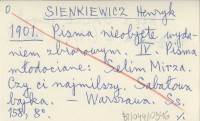 0
SIENKIEWICZ Henryk
1901. Pisma nieobjęte wyda-
niem zbiorowem. IV. Pisma
młodociane: Selim Mirza.
Czy ci najmilszy. Sabałowa
bajka. — Warszawa. Ss.
158, 8°.